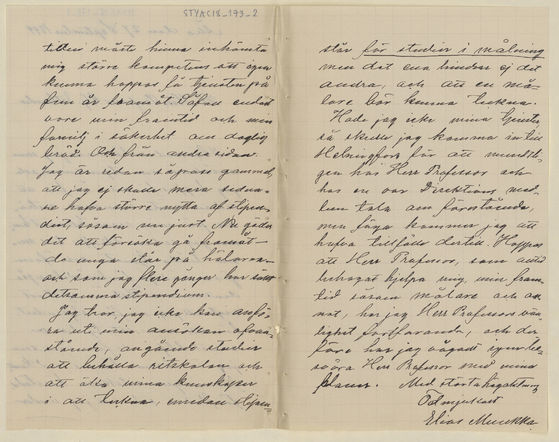 STYAC18_193_2
tiden måste hinna inhämta
mig större kompetens att ägna
kunna hoppas få tjensten på
fem år framåt. Såsom endast
vore min framtid och min
familj i säkerhet om daglig
bröd. Och från andra sidan
Jag är redan såpass gammal,
att jag ej skulle mera sedan-
ne hafva större nytta af stipen-
diet, såsom nu just. Nu gäller
det att försöka gå framåt —
de unga står på hälarna —
och som jag flere gånger har sökt
detsamma stipendium.
Jag tror, jag icke kan anfö-
ra uti min ansökan ofvan-
stående, angående studier
att behålla ritskolan och
att öka mina kunskaper
i att teckna, emedan stipen-
står för studier i målning
men det ena hindrar ej det
andra, och att en må-
lare bör kunna teckna.
Hade jag icke mina tjenster,
så skulle jag komma in till
Helsingfors för att muntli-
gen hos Herr Professor och
hos en var Direktions med-
lem tala om förestående,
men föga kommer jag att
hafva tillfälle dertill. Hoppas
att Herr Professor, som alltid
behagat hjelpa mig, min fram-
tid såsom målare och an-
nat, har jag Herr Professors vän-
lighet fortfarande, och der
före har jag vågat igen be-
svära Herr Professor med mina
planer. Med största högaktning
Ödmjukast
Elias Muukka